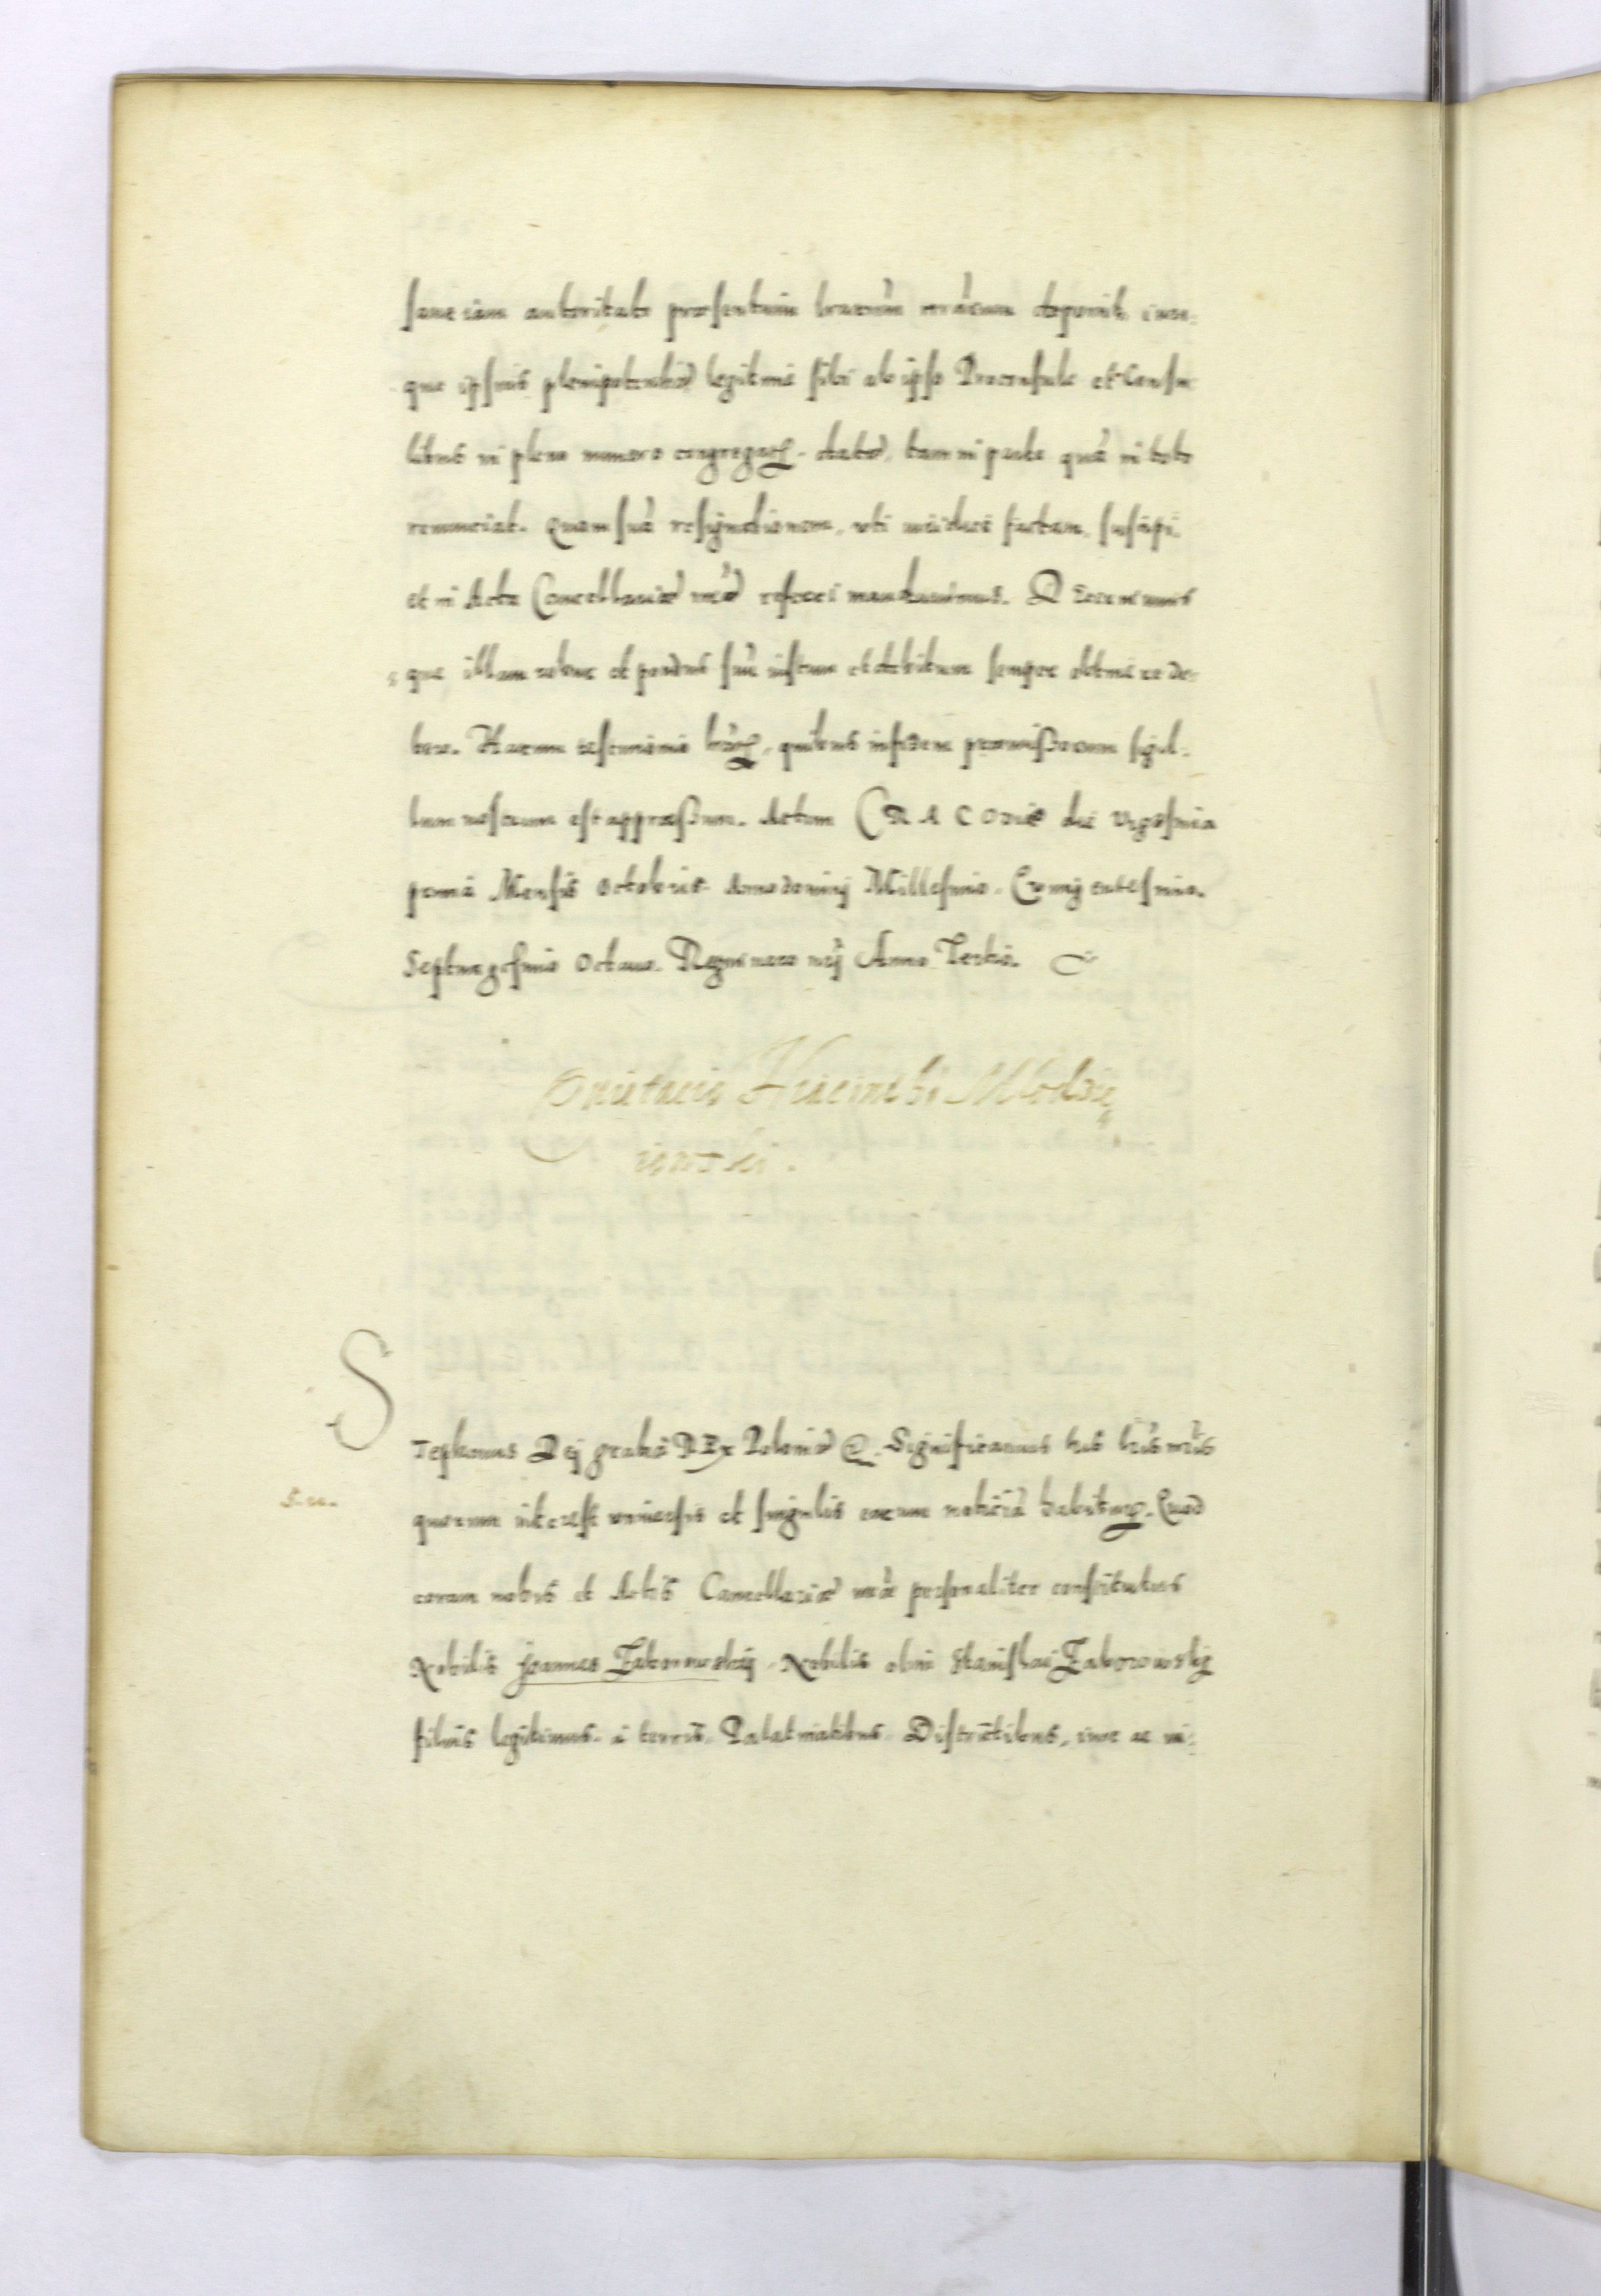 autoritate præsentium deponit,
que ipsius plenipotentiæ legitime sibi ab ipso Proconsule et Consu
libus in pleno numero congregatꝶ. datæ, tam in parte quã in toto
renunciat. Quam suã resignationem, uti factam, suscipi.
et in Acta Cancellariæ nr̃æ referri mandavimus. Decernimus
que illam robur et pondus suũ iustum et debitum semper obtinere de-
bere. Harum testimonio lr̃arꝶ, quibus in fidem præmissorum sigil-
lum nostrum est appressum. Actum CRACOviæ die Vigesima
prima Mensis Octobris. Anno Dominij Millesimo. Quingentesimo.
Septuagesimo Octavo. Regni vero nr̃j Anno Tertio.
Hiacinthi Młodzie
iowski.
Stephanus Dej gratia REx Poloniæ &. Significamus his lr̃is nr̃is
quorum interest universis et singulis earum noticiã habiturꝶ. Quod
coram nobis et Actis Cancellariæ nr̃æ personaliter constitutus
Nobilis Joannes Zaborowskij. Nobilis olim Stanislai Zaborowskj
filius legitimus. a terris, Palatinatibus. Districtibus, iure ac